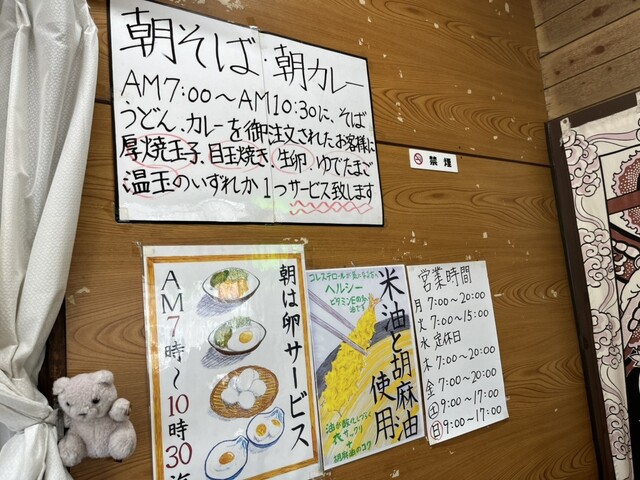 朝そば・朝カレー
AM7:00～AM10:30に、そば
うどん、カレーを御注文されたお客様に
厚焼玉子、目玉焼き、生卵、ゆでたまご
温玉のいずれか1つサービス致します
禁煙
朝は卵サービス
AM7時～10時30迄
コレステロールが気になる方へ
ヘルシー
ビタミンEの多い
油です
米油と胡麻油
使用
油が酸化しづらく
衣サックリ
+
胡麻油のコク
営業時間
月 7:00～20:00
火 7:00～15:00
水 定休日
木 7:00～20:00
金 7:00～20:00
土 9:00～17:00
日 9:00～17:00